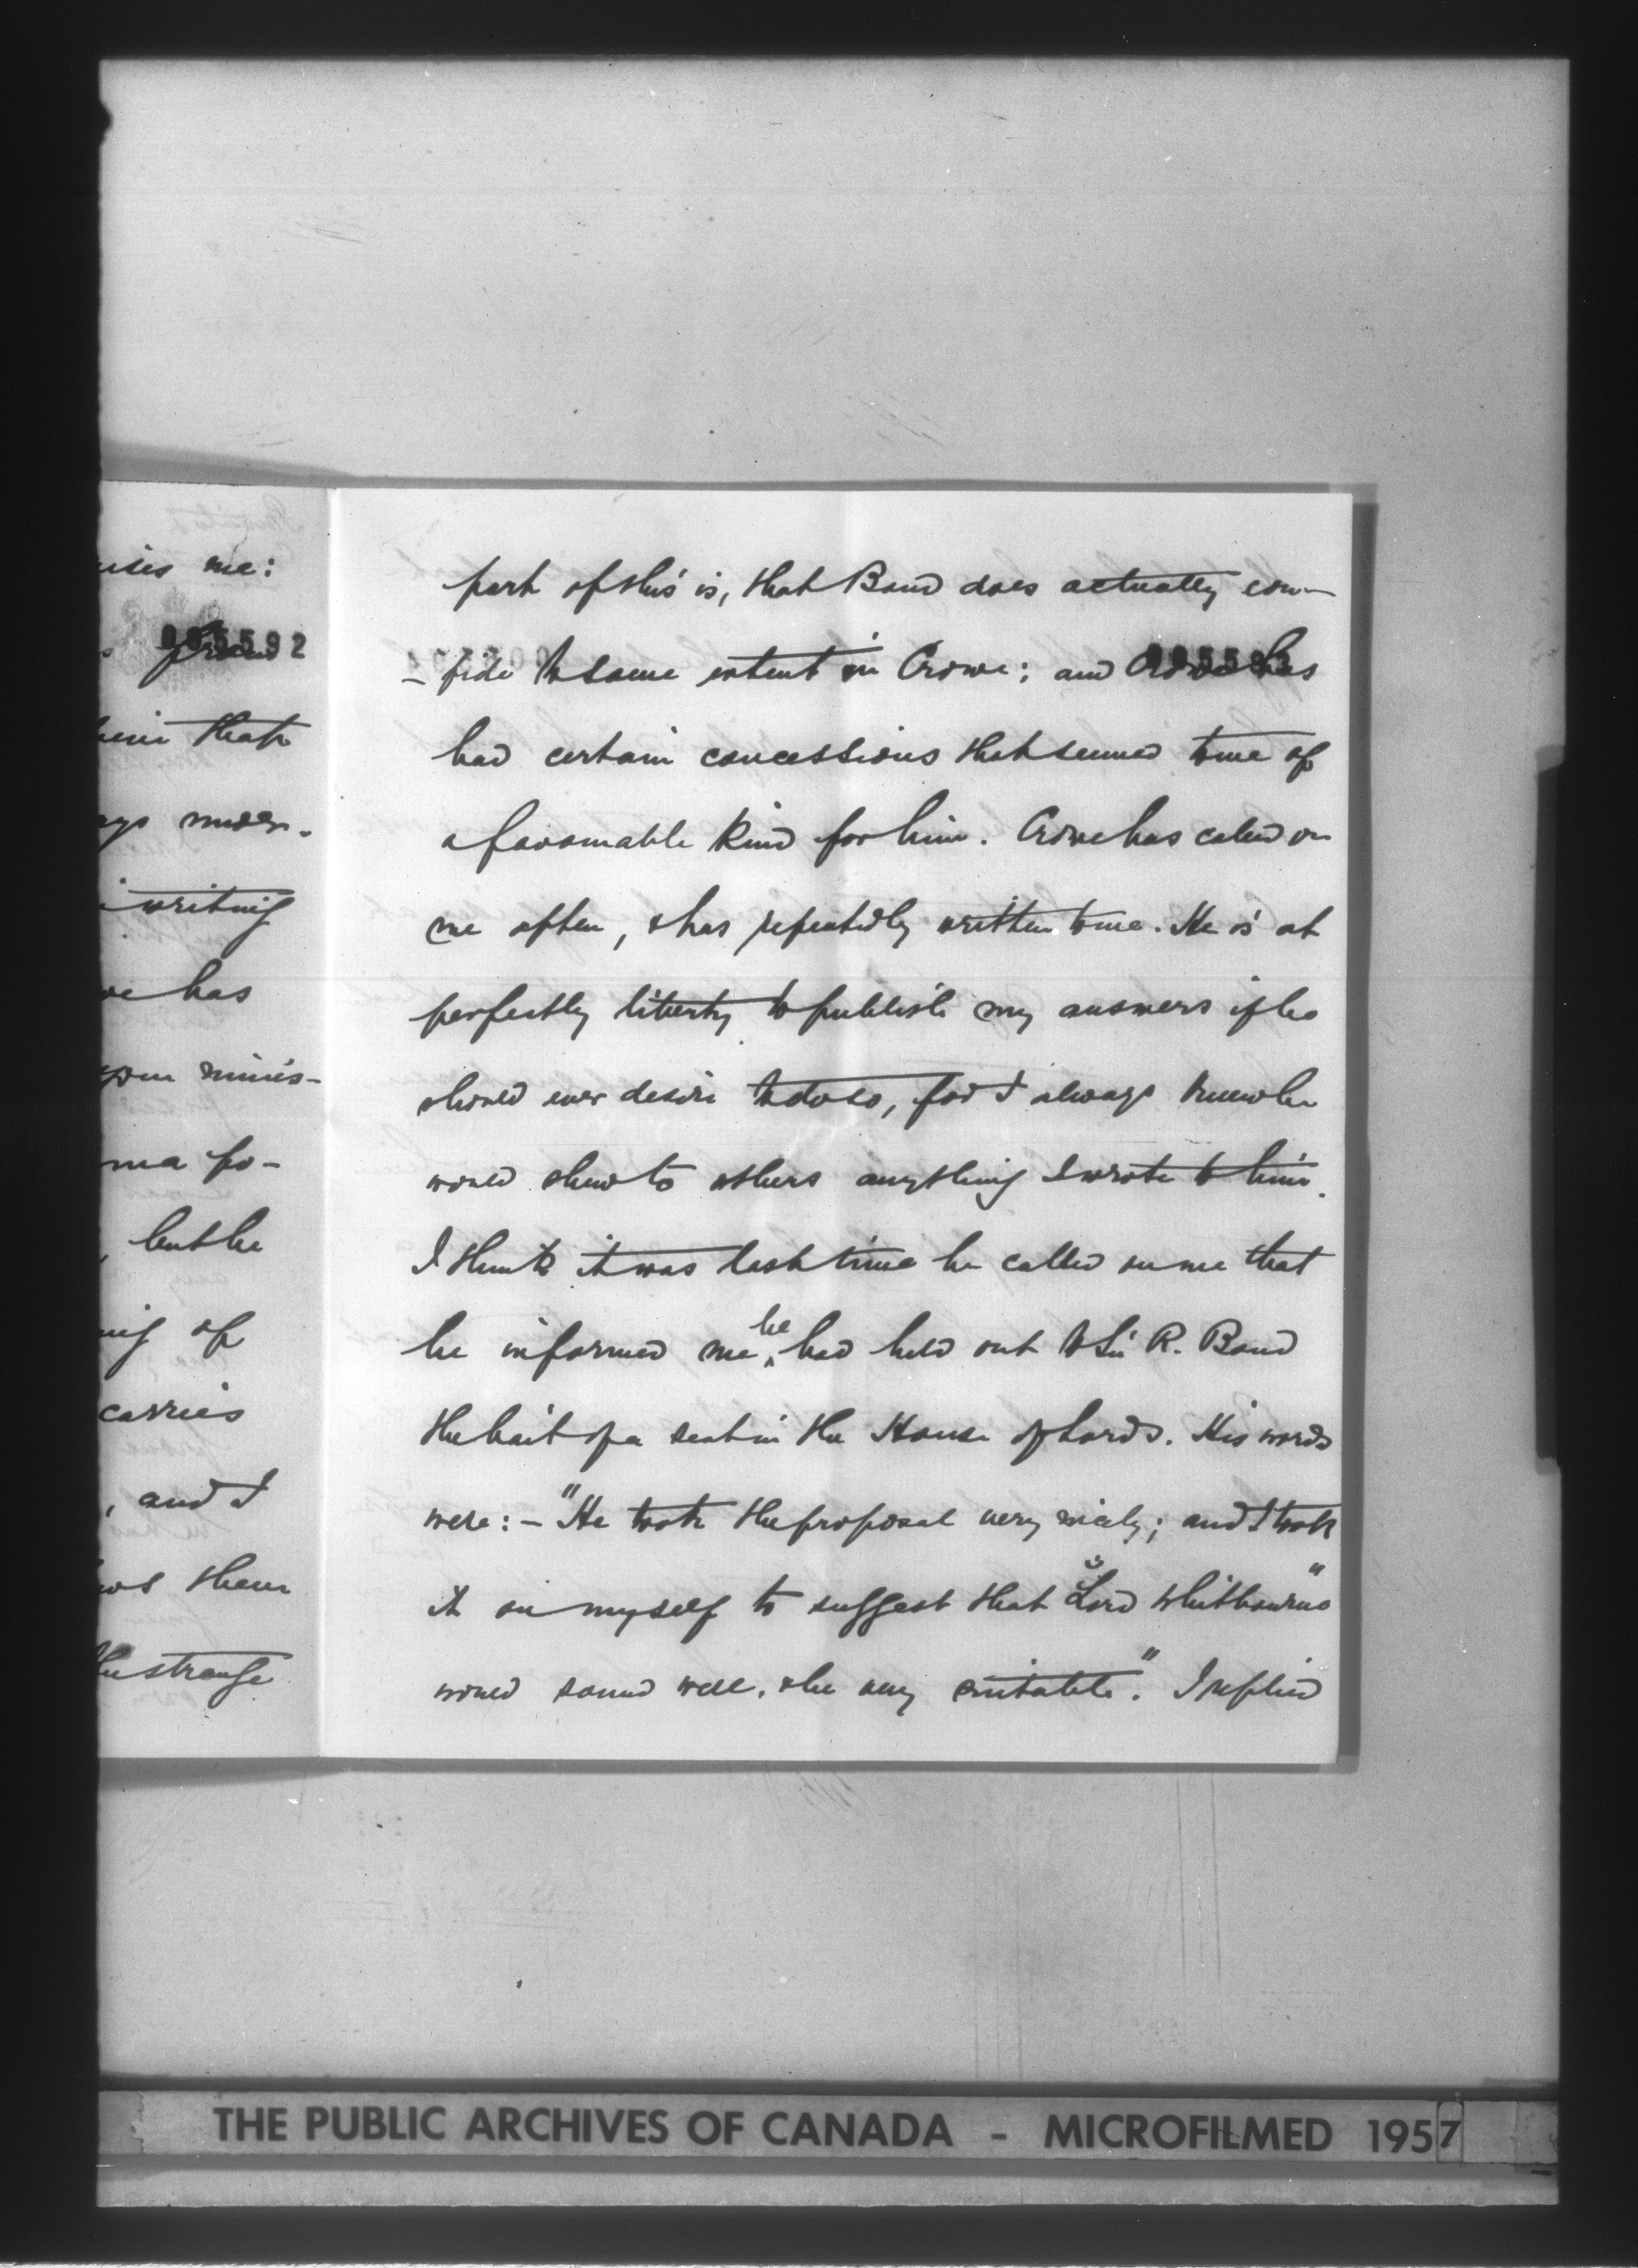 uises me:
005592
hein that
ays under-
i writing
we has
your minis-
ma fo-
, but he
ing of
carries
, and I
ws them
the strange
part of this is, that Bond does actually con-
005593
- fide to some extent in Crowe; and Crowe has
had certain concessions that seemed to me of
a favourable kind for him. Crowe has called on
me often, & has repeatedly written to me. He is at
perfectly liberty to publish my answers if he
should ever desire to do so, for I always knew he
would shew to others anything I wrote to him.
I think it was last time he called on me that
he informed me he had held out to Sir R. Bond
the bait of a seat in the House of Lords. His words
were: - "He took the proposal very nicely; and I took
it on myself to suggest that "Lord Whitbourne"
would sound well, & be very suitable." I replied
THE PUBLIC ARCHIVES OF CANADA - MICROFILMED 1957